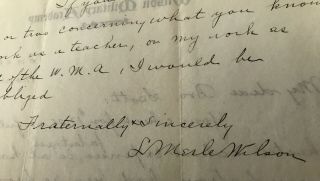 If you
or two concerning what you know
as a teacher, or my work as
of the W. M. A., I would be
obliged
Fraternally & Sincerely
L Merle Wilson